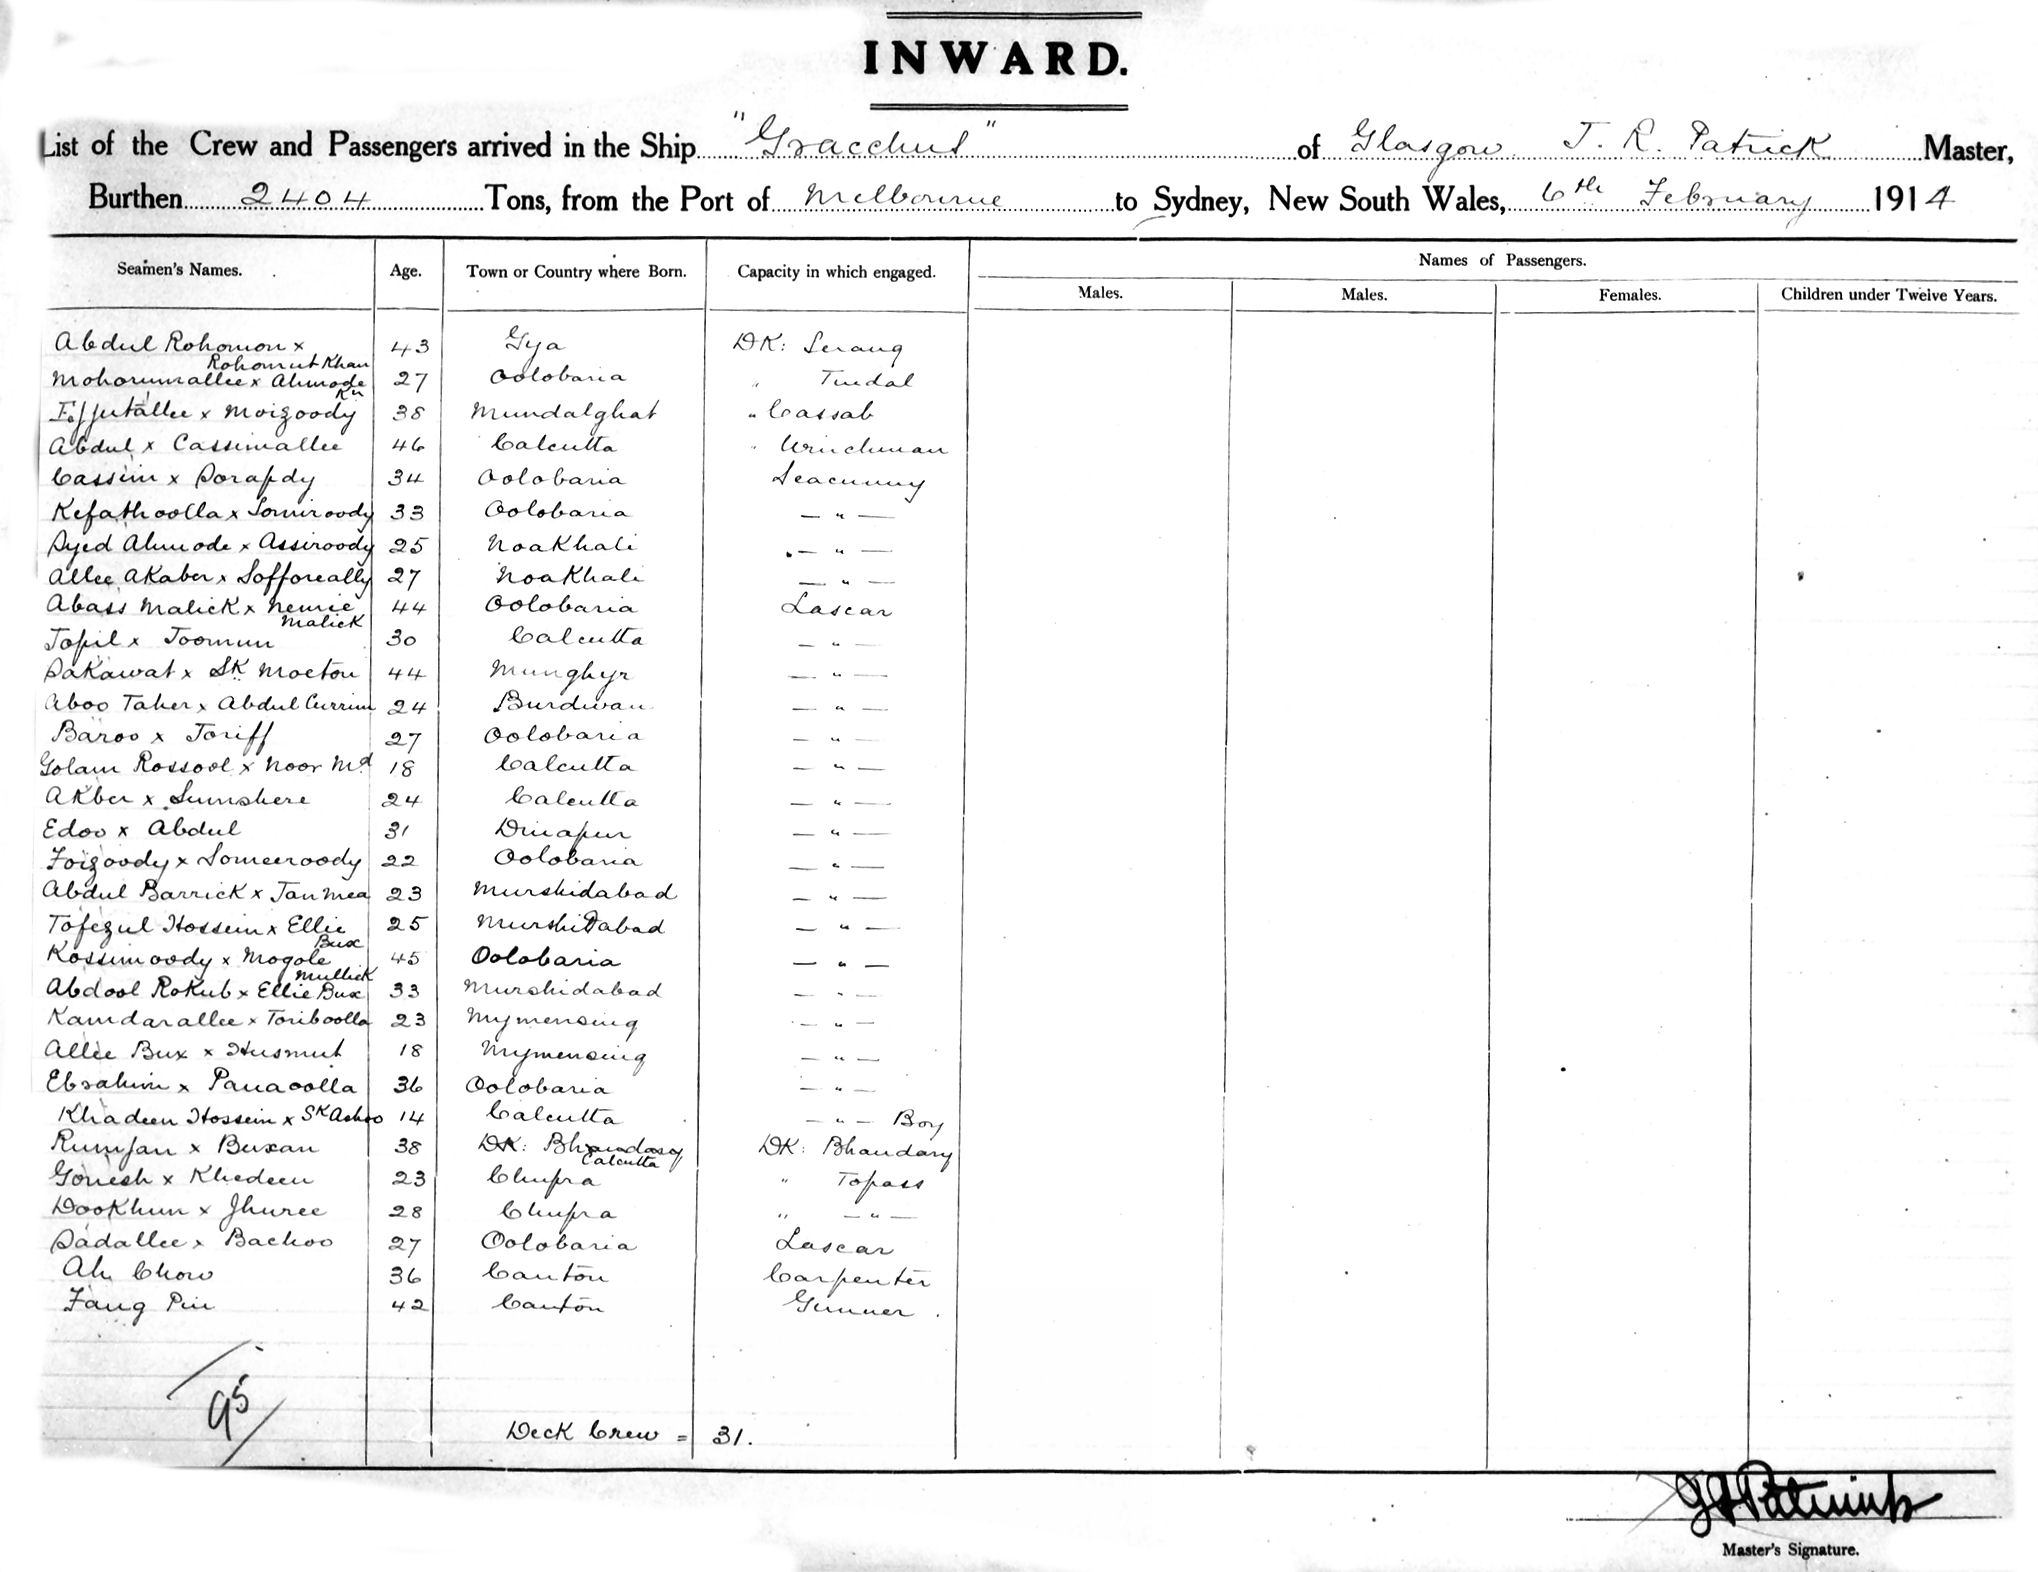 INWARD.
List of the Crew and Passengers arrived in the Ship "Gracchus" of Glasgow J. R. Patrick Master,
Burthen 2404 Tons, from the Port of Melbourne to Sydney, New South Wales, 6th February 1914
Names of Passengers.
Seamen's Names. Age. Town or Country where Born. Capacity in which engaged. Males. Males. Females. Children under Twelve Years.
Abdul Rohomon x Rohomut Khan 43 Gya DK: Serang
Mohorumallee x Ahmode Kn 27 Oolobaria " Tindal
Effutallee x Moizoody 38 Mundalghat " Cassab
Abdul x Cassimallee 46 Calcutta " Winchman
Cassim x Sorafdy 34 Oolobaria Seacunny
Kefathoolla x Somiroody 33 Oolobaria — " —
Syed Ahmode x Assiroody 25 Noakhali — " —
Allee Akaber x Sofforeally 27 Noakhali — " —
Abass Malick x Nemie Malick 44 Oolobaria Lascar
Topil x Toomun 30 Calcutta — " —
Sakawat x Sk Moeton 44 Munghyr — " —
Aboo Taher x Abdul Currim 24 Burdwan — " —
Baroo x Toriff 27 Oolobaria — " —
Golam Rossool x Noor Md 18 Calcutta — " —
Akber x Sumshere 24 Calcutta — " —
Edoo x Abdul 31 Dinapur — " —
Foizoody x Someeroody 22 Oolobaria — " —
Abdul Barrick x Jan Mea 23 Murshidabad — " —
Tofezul Hossein x Ellie Bux 25 Murshidabad — " —
Kossimoody x Mogole Mullick 45 Oolobaria — " —
Abdool Rokub x Ellie Bux 33 Murshidabad — " —
Kamdarallee x Toriboolla 23 Mymensing — " —
Allee Bux x Husmut 18 Mymensing — " —
Ebrahim x Panaoolla 36 Oolobaria — " —
Khadeen Hossein x Sk Achoo 14 Calcutta — " — Boy
Rumjan x Buxan 38 DK: Bhandary Calcutta DK: Bhandary
Gonesh x Khedeen 23 Chupra " Topass
Dookhun x Jhuree 28 Chupra " — " —
Sadallee x Bachoo 27 Oolobaria Lascar
Ah Chow 36 Canton Carpenter
Fang Pin 42 Canton Gunner.
95
Deck Crew = 31.
J R Patrick
Master's Signature.